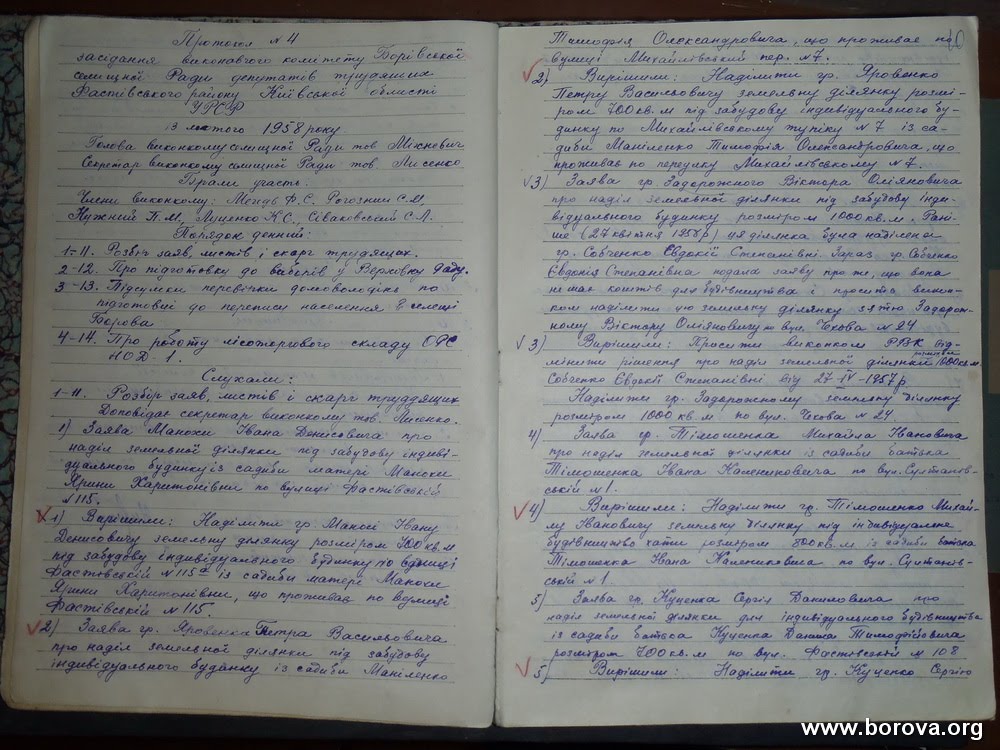 Протокол № 4
засідання виконавчого комітету Борівської
селищної Ради депутатів трудящих
Фастівського району Київської області
УРСР
13 лютого 1958 року.
Голова виконкому селищної Ради тов Міхневич
Секретар виконкому селищної Ради тов Лисенко
Брали участь:
Члени виконкому: Мегидь Ф.С. Рогозний С.М,
Нужний П.М, Луценко К.С, Сіваковський С.Л.
Порядок денний:
1-11. Розбір заяв, листів і скарг трудящих.
2-12. Про підготовку до виборів у Верховну Раду.
3-13. Підсумки перевірки домоволодінь по
підготовці до перепису населення в селищі
Борова
4-14. Про роботу лісоторгового складу ОРС
НОД-1.
Слухали:
1-11. Розбір заяв, листів і скарг труддящих
Доповідає секретар виконкому тов. Лисенко.
1) Заява Манохи Івана Денисовича про
наділ земельної ділянки під забудову індиві-
дуального будинку із садиби матері Манохи
Ярини Харитонівни по вулиці Фастівській
№115.
1) Вирішили: Наділити гр Маносі Івану
Денисовичу земельну ділянку розміром 700 кв.м
під забудову індивідуального будинку по вулиці
Фастівській № 115а із садиби матері Манохи
Ярини Харитонівни, що проживає по вулиці
Фастівській № 115
2) Заява гр. Яровенка Петра Васильовича
про наділ земельної ділянки під забудову
індивідуального будинку із садиби Маніленко
Тимофія Олександровича, що проживає по
вулиці Михайлівський пер. №7.
2) Вирішили: Наділити гр. Яровенко
Петру Васильовичу земельну ділянку розмі-
ром 700 кв. м під забудову індивідуального бу-
динку по Михайлівському тупіку № 7 із са-
диби Маніленко Тимофія Олександровича, що
проживає по переулку Михайлівському № 7.
3) Заява гр. Задорожного Віктора Оліяновича
про наділ земельної ділянки під забудову інди-
відуального будинку розміром 1000 кв. м. Рані-
ше (27 квітня 1957р) ця ділянка була наділена
гр. Собченко Євдокії Степанівні. Зараз гр. Собченко
Євдокія Степанівна подала заяву про те, що вона
не має коштів для будівництва і просить викон-
ком наділити цю земельну ділянку зятю Задорож-
ному Віктору Оліяновичу по вул. Чехова № 24
3) Вирішили: Просити виконком РВК від-
мінити рішення про наділ земельної ділянки розміром 1000 кв.м
Собченко Євдокії Степанівні від 27-IV-1957р.
Наділити гр. Задорожному земельну ділянку
розміром 1000 кв. м по вул. Чехова № 24
4) Заява гр. Тімошенка Михайла Івановича
про наділ земельної ділянки із садиби батька
Тімошенка Івана Калениковича по вул. Султанів-
ській №1.
4) Вирішили: Наділити гр. Тімошенко Михай-
лу Івановичу земельну ділянку під індивідуальне
будівництво хати розміром 800 кв. м із садиби батька
Тімошенка Івана Калениковича по вул. Султанів-
ській № 1
5) Заява гр. Куценка Сергія Даниловича про
наділ земельної ділянки для індивідуального будівництва
із садиби батька Куценка Данила Тимофійовича
розміром 700 кв. м по вул. Фастівській № 108
5) Вирішили: Наділити гр. Куценко Сергію
www.borova.org